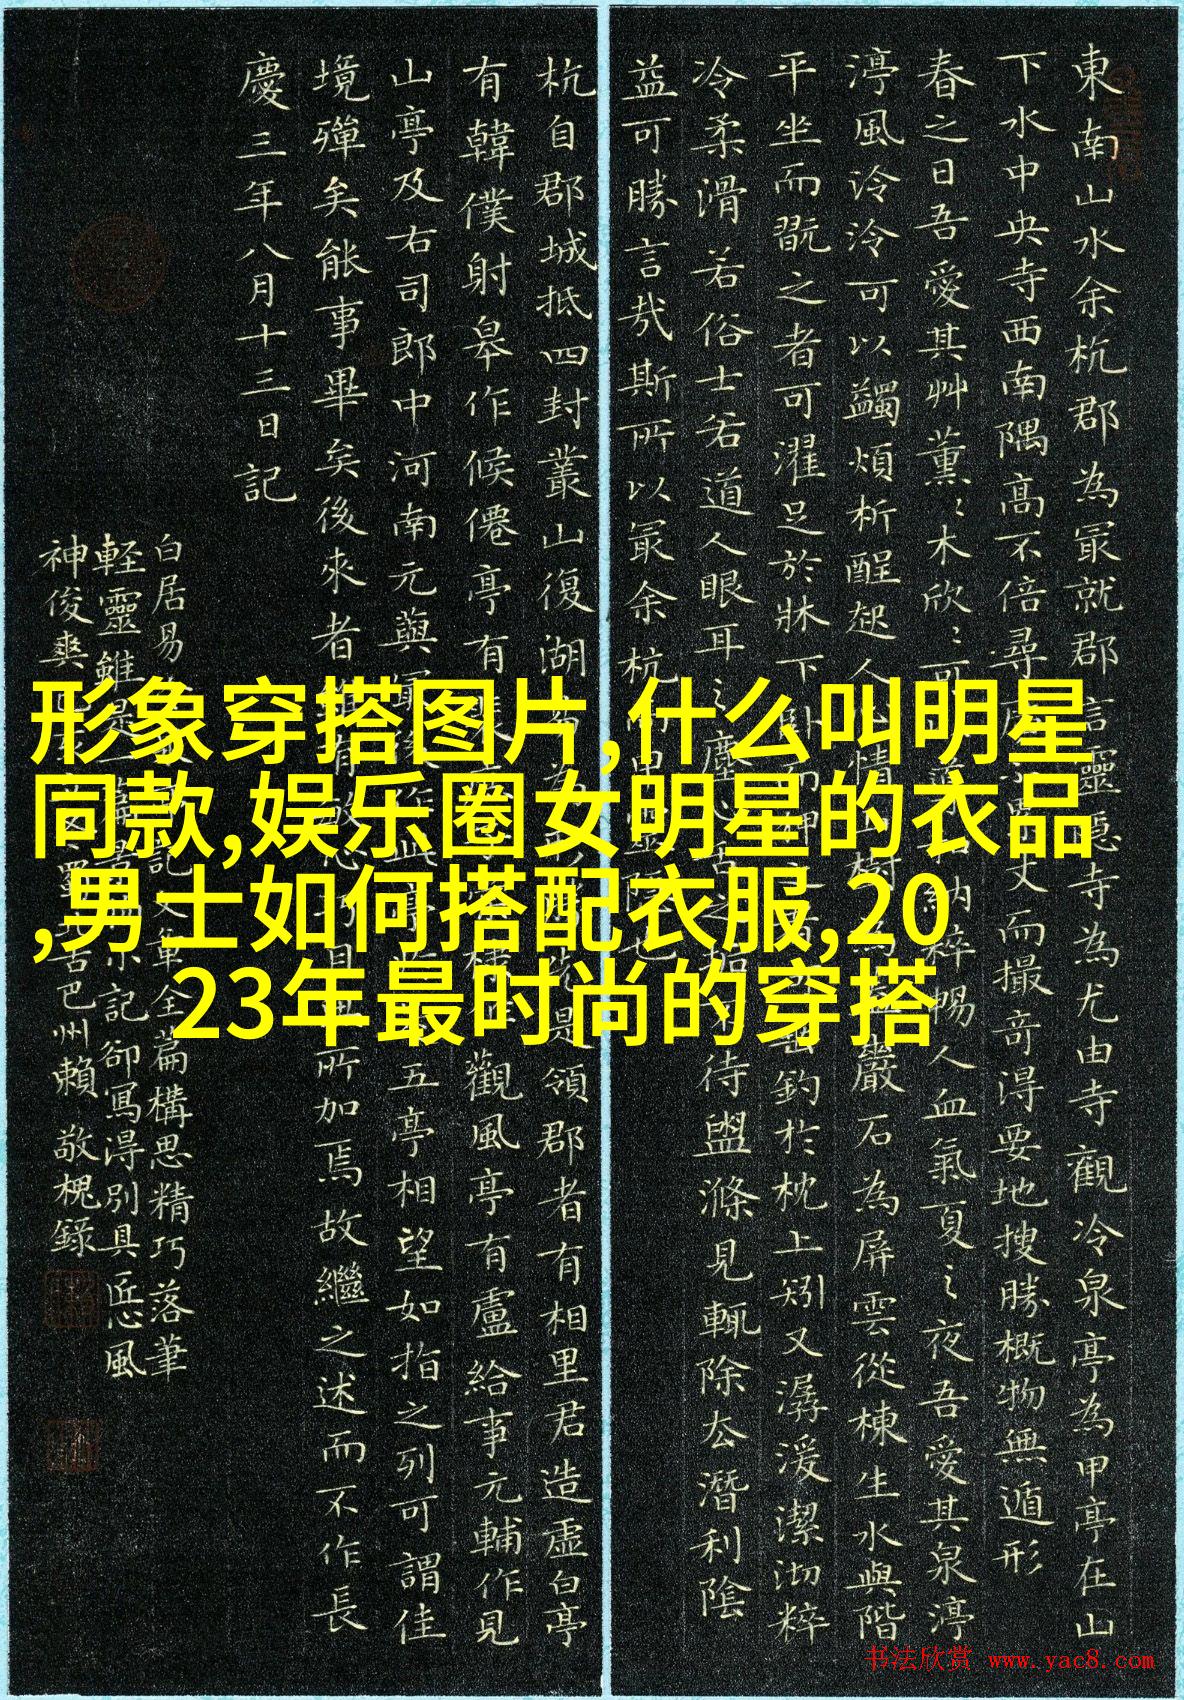 形象穿搭图片,什么叫明星
同款,娱乐圈女明星的衣品
,男士如何搭配衣服,20
23年最时尚的穿搭
東南山水余杭郡為冣就郡言靈隱寺為尤由寺觀冷泉亭為甲亭在山
下水中央寺西南隅高不倍尋丈而撮奇得要地搜勝概物無遁形
春之日吾愛其艸薰〻木欣〻可納粹暢人血氣夏之夜吾愛其泉渟
渟風泠泠可以蠲煩析酲起人情樹巖石為屏雲從棟生水與階
平坐而翫之者可濯足於牀下臥而釣於枕上矧又潺湲潔沏粹
冷柔滑若俗士若道人眼耳之塵舌之垢待盥滌見輒除去潛利陰
益可勝言哉斯所以冣余杭而甲靈隱也
杭自郡城抵四封叢山復湖易為是領郡者有相里君造虛白亭
有韓僕射皋作候僊亭有裴觀風亭有盧給事元輔作見
山亭及右司郎中河南元藇冣後作此亭五亭相望如指之列可謂佳
境殫矣能事畢矣後來者雖有敏心巧目無所加焉故繼之述而不作長
慶三年八月十三日記
白居易記文章全篇構思精巧落筆
軽靈雖是記卻寫得別具匠心風
神俊爽古巴州賴敬槐錄
书法欣赏 www.yac8.com